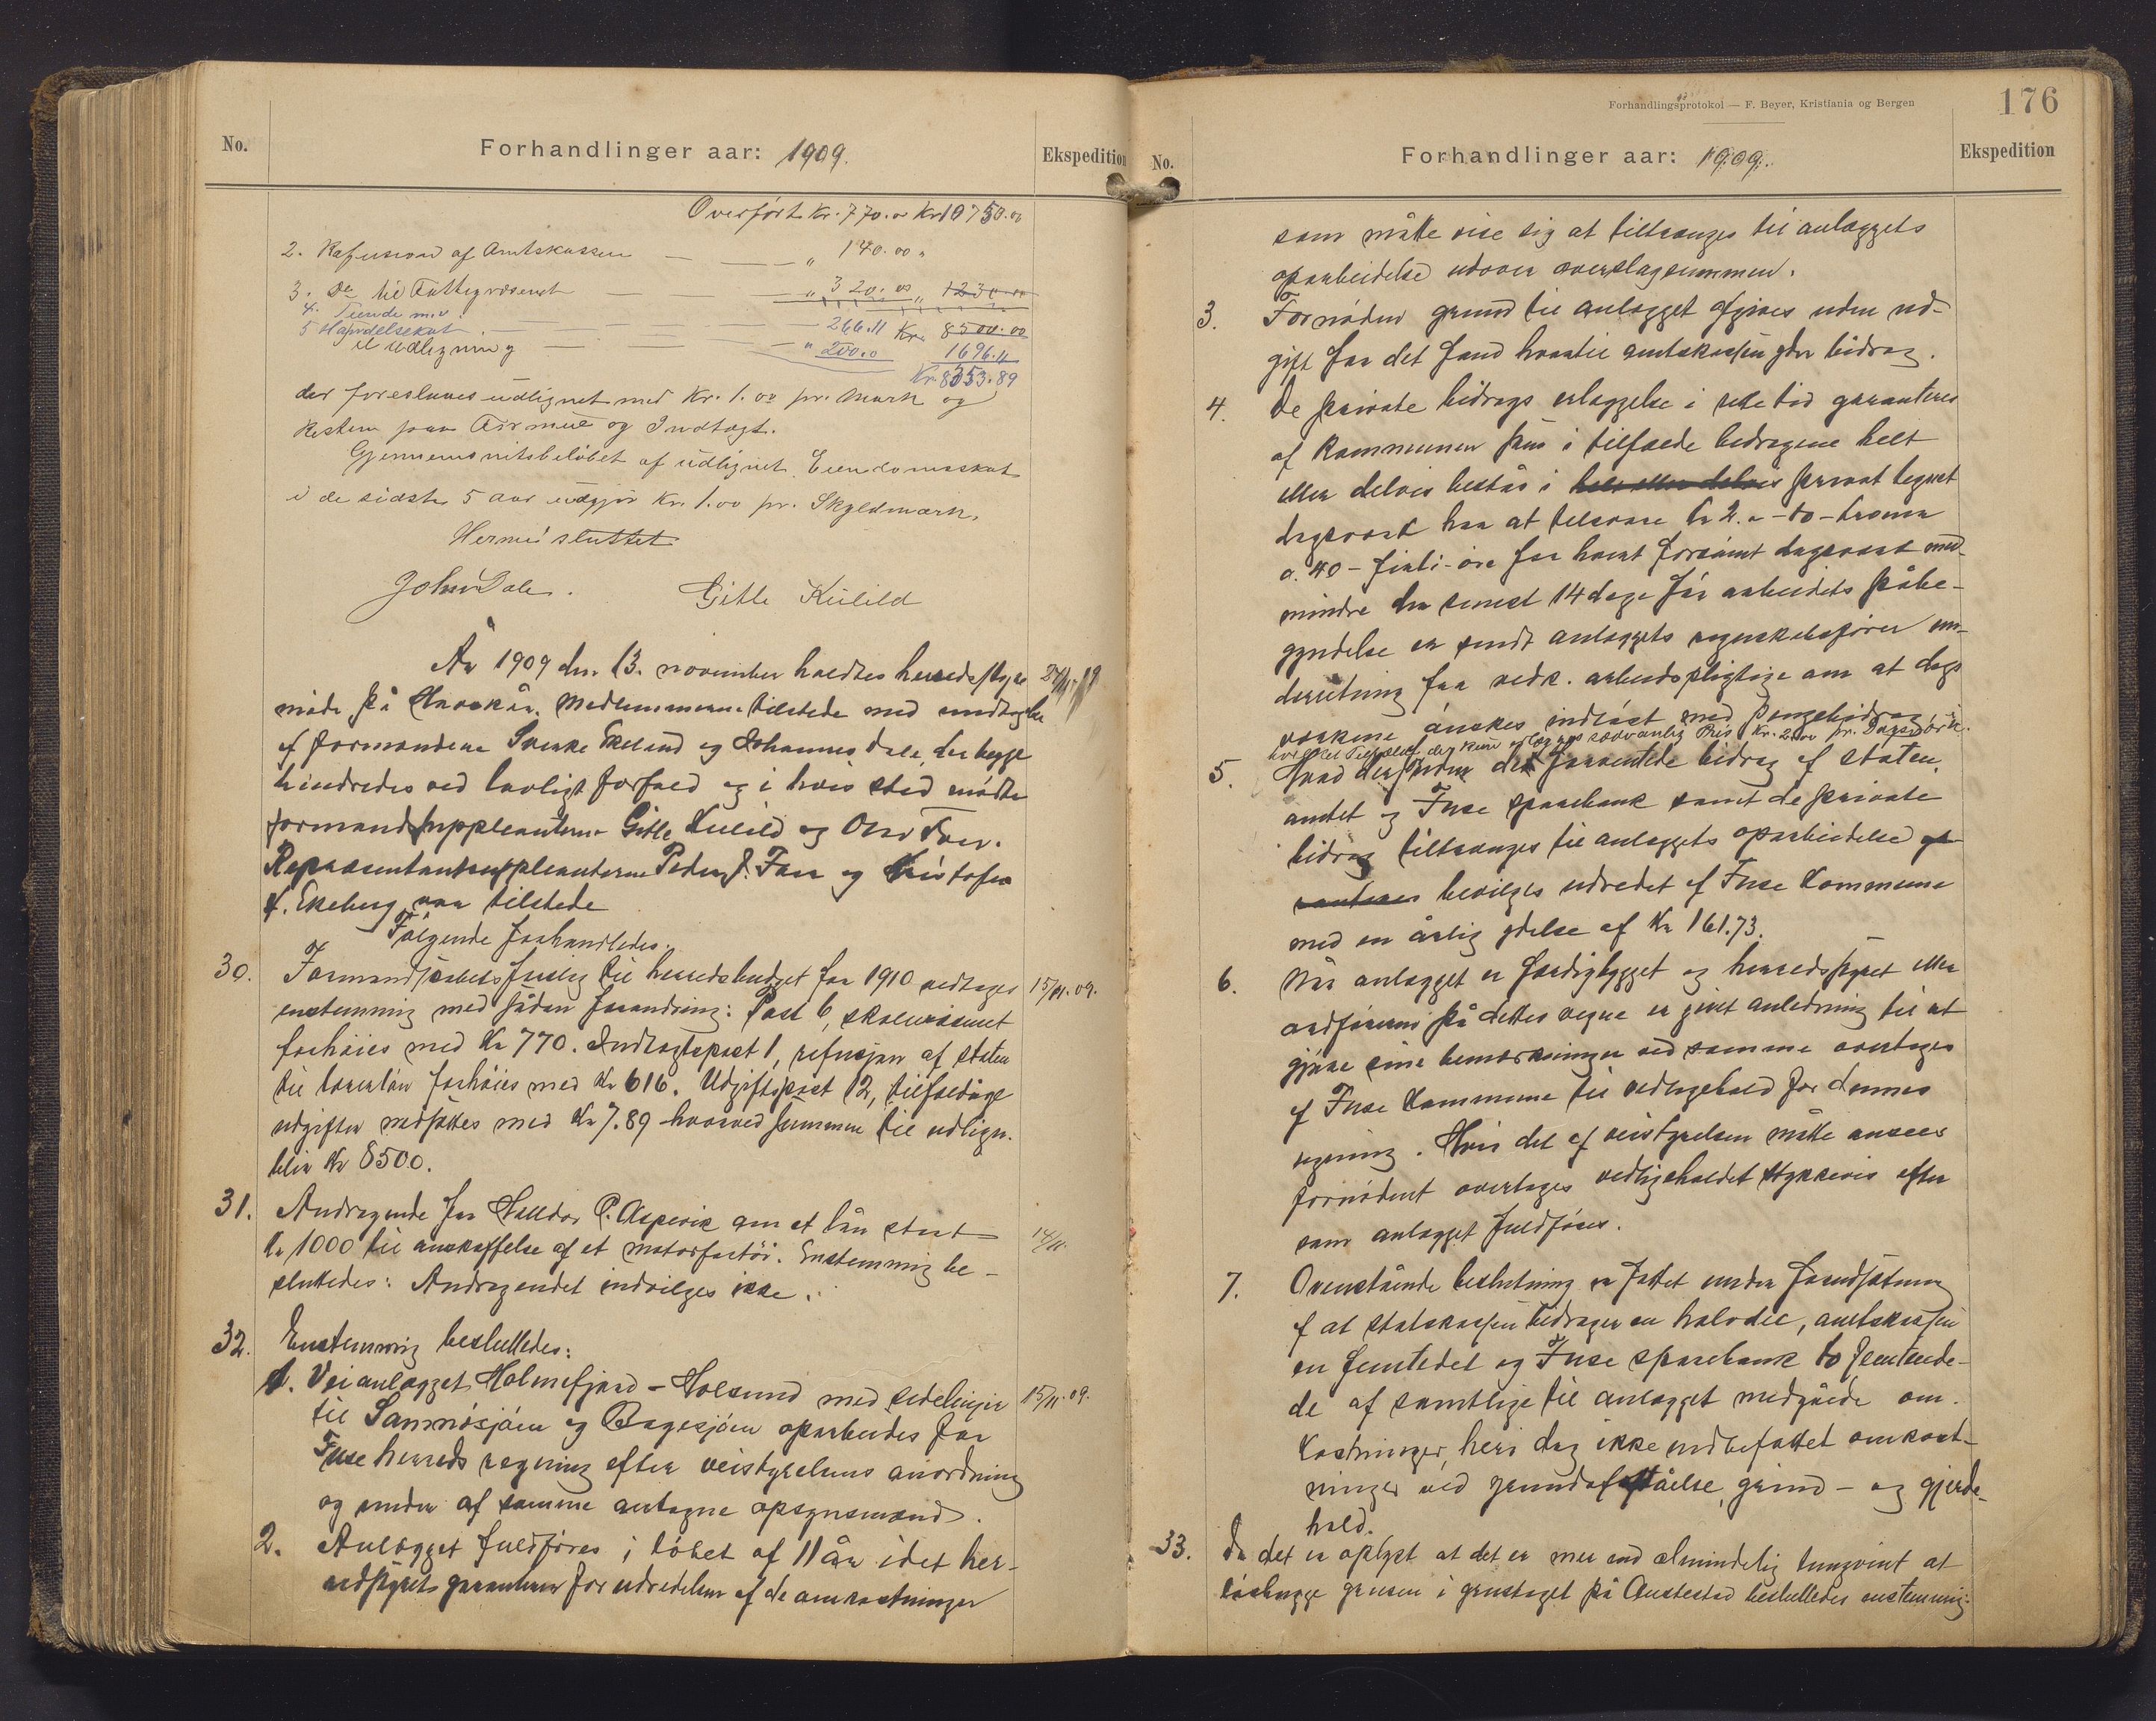 No. Forhandlinger aar: 1909. Ekspedition
Overført Kr. 770.00 Kr 10750.00
2. Refusion af Amtskassen — — " 140.00 "
3. Do til Fattigvæsenet — — " 320.00 " 1230.00
4. Tiende m.v.
5 Handelsskat — — 266.11 Kr. 8500.00
til Udligning — — " 200.0 1696.11
Kr. 8353.89
der foreslaaes udlignet med Kr. 1.00 pr. Mark og
Resten paa Formue og Indtægt.
Gjennemsnitsbeløbet af udlignet Eiendomsskat
i de sidste 5 aar udgjør Kr. 1.00 pr. Skyldmark.
Hermed sluttet
John Dale. Gitle Kulild
År 1909 den 13. november holdtes herredsstyre
møde på Havskår. Medlemmerne tilstede med undtagelse
af formændene Sverke Ekeland og Johannes Dale, der begge
hindredes ved lovligt forfald og i hvis sted mødte
formandssuppleanterne Gitle Kulild og
Repræsentantsuppleanterne Peder J. og Kristofer
Ekeberg var tilstede
Følgende forhandledes.
30. Formandskabets forslag til herredsbudget for 1910 vedtages 15/11.09.
enstemmig med sådan forandring: Post 6, skolevæsenet
forhøies med Kr 770. Indtægtspost 1, refusjon af staten
til lærerløn forhøies med Kr 616. Udgiftspost 12, tilfældige
udgifter nedsættes med Kr 7.89 hvorved summen til udlign.
blir Kr 8500.
31. Andragende fra Halldor P. Aspevik om et lån stort 14/11.
Kr 1000 til anskaffelse af et motorfartøi. Enstemmig be-
sluttedes: Andragendet indvilges ikke.
32. Enstemmig besluttedes:
1. Veianlægget Holmefjord - Holsund med sidelinjer 15/11.09.
til Samnøsjøen og Bogesjøen oparbeides for
Fuse herreds regning efter veistyrelsens anordning
og under af samme antagne opsynsmænd.
2. Anlægget fuldføres i løbet af 11 år idet her-
redsstyret garanterer for udredelsen af de omkostninger
Forhandlingsprotokol — F. Beyer, Kristiania og Bergen 176
No. Forhandlinger aar: 1909. Ekspedition
som måtte vise sig at tiltrænges til anlæggets
oparbeidelse udover overslagsummen.
3. Fornøden grund til anlægget afgives uden ud-
gift for det fond hvortil amtskassen yder bidrag.
4. De private bidrags erlæggelse i rette tid garanteres
af kommunen som i tilfælde bidragene helt
eller delvis består i helt eller delvis privat tegnet
dagsverk har at tilsvare Kr 2. - to - kroner
o. 40 - firti - øre for hvert forsømt dagsverk med-
mindre der senest 14 dage før arbeidets påbe-
gyndelse er sendt anlæggets regnskabsfører un-
derretning fra vedk. arbeidspligtige om at dags
værkene ønskes indløst med Pengebidrag, i
hvilket Tilfælde der kun erlægges sædvanlig Pris Kr. 2.00 pr. Dagsværk.
5. Hvad der foruden det forventede bidrag af staten,
amtet og Fuse sparebank samt de private
bidrag tiltrænges til anlæggets oparbeidelse ga-
ranteres bevilges udredet af Fuse Kommune
med en årlig ydelse af Kr 161.73.
6. Når anlægget er færdigbygget og herredsstyret eller
ordføreren på dettes vegne er givet anledning til at
gjøre sine bemerkninger ved samme overtages
af Fuse Kommune til vedligehold for dennes
regning. Hvis det af veistyrelsen måtte ansees
fornødent overtages vedligeholdet stykkevis efter
som anlægget fuldføres.
7. Ovenstående beslutning er fattet under forudsætning
af at statskassen bidrager en halvdel, amtskassen
en femtedel og Fuse sparebank to femtende-
de af samtlige til anlægget medgåede om-
kostninger, heri dog ikke indbefattet omkost-
ninger ved grundafståelse, grind - og gjerde-
hold.
33. Da det er oplyst at det er mer end almindelig tungvint at
løshugge grusen i grustaget på Austestad besluttedes enstemmig